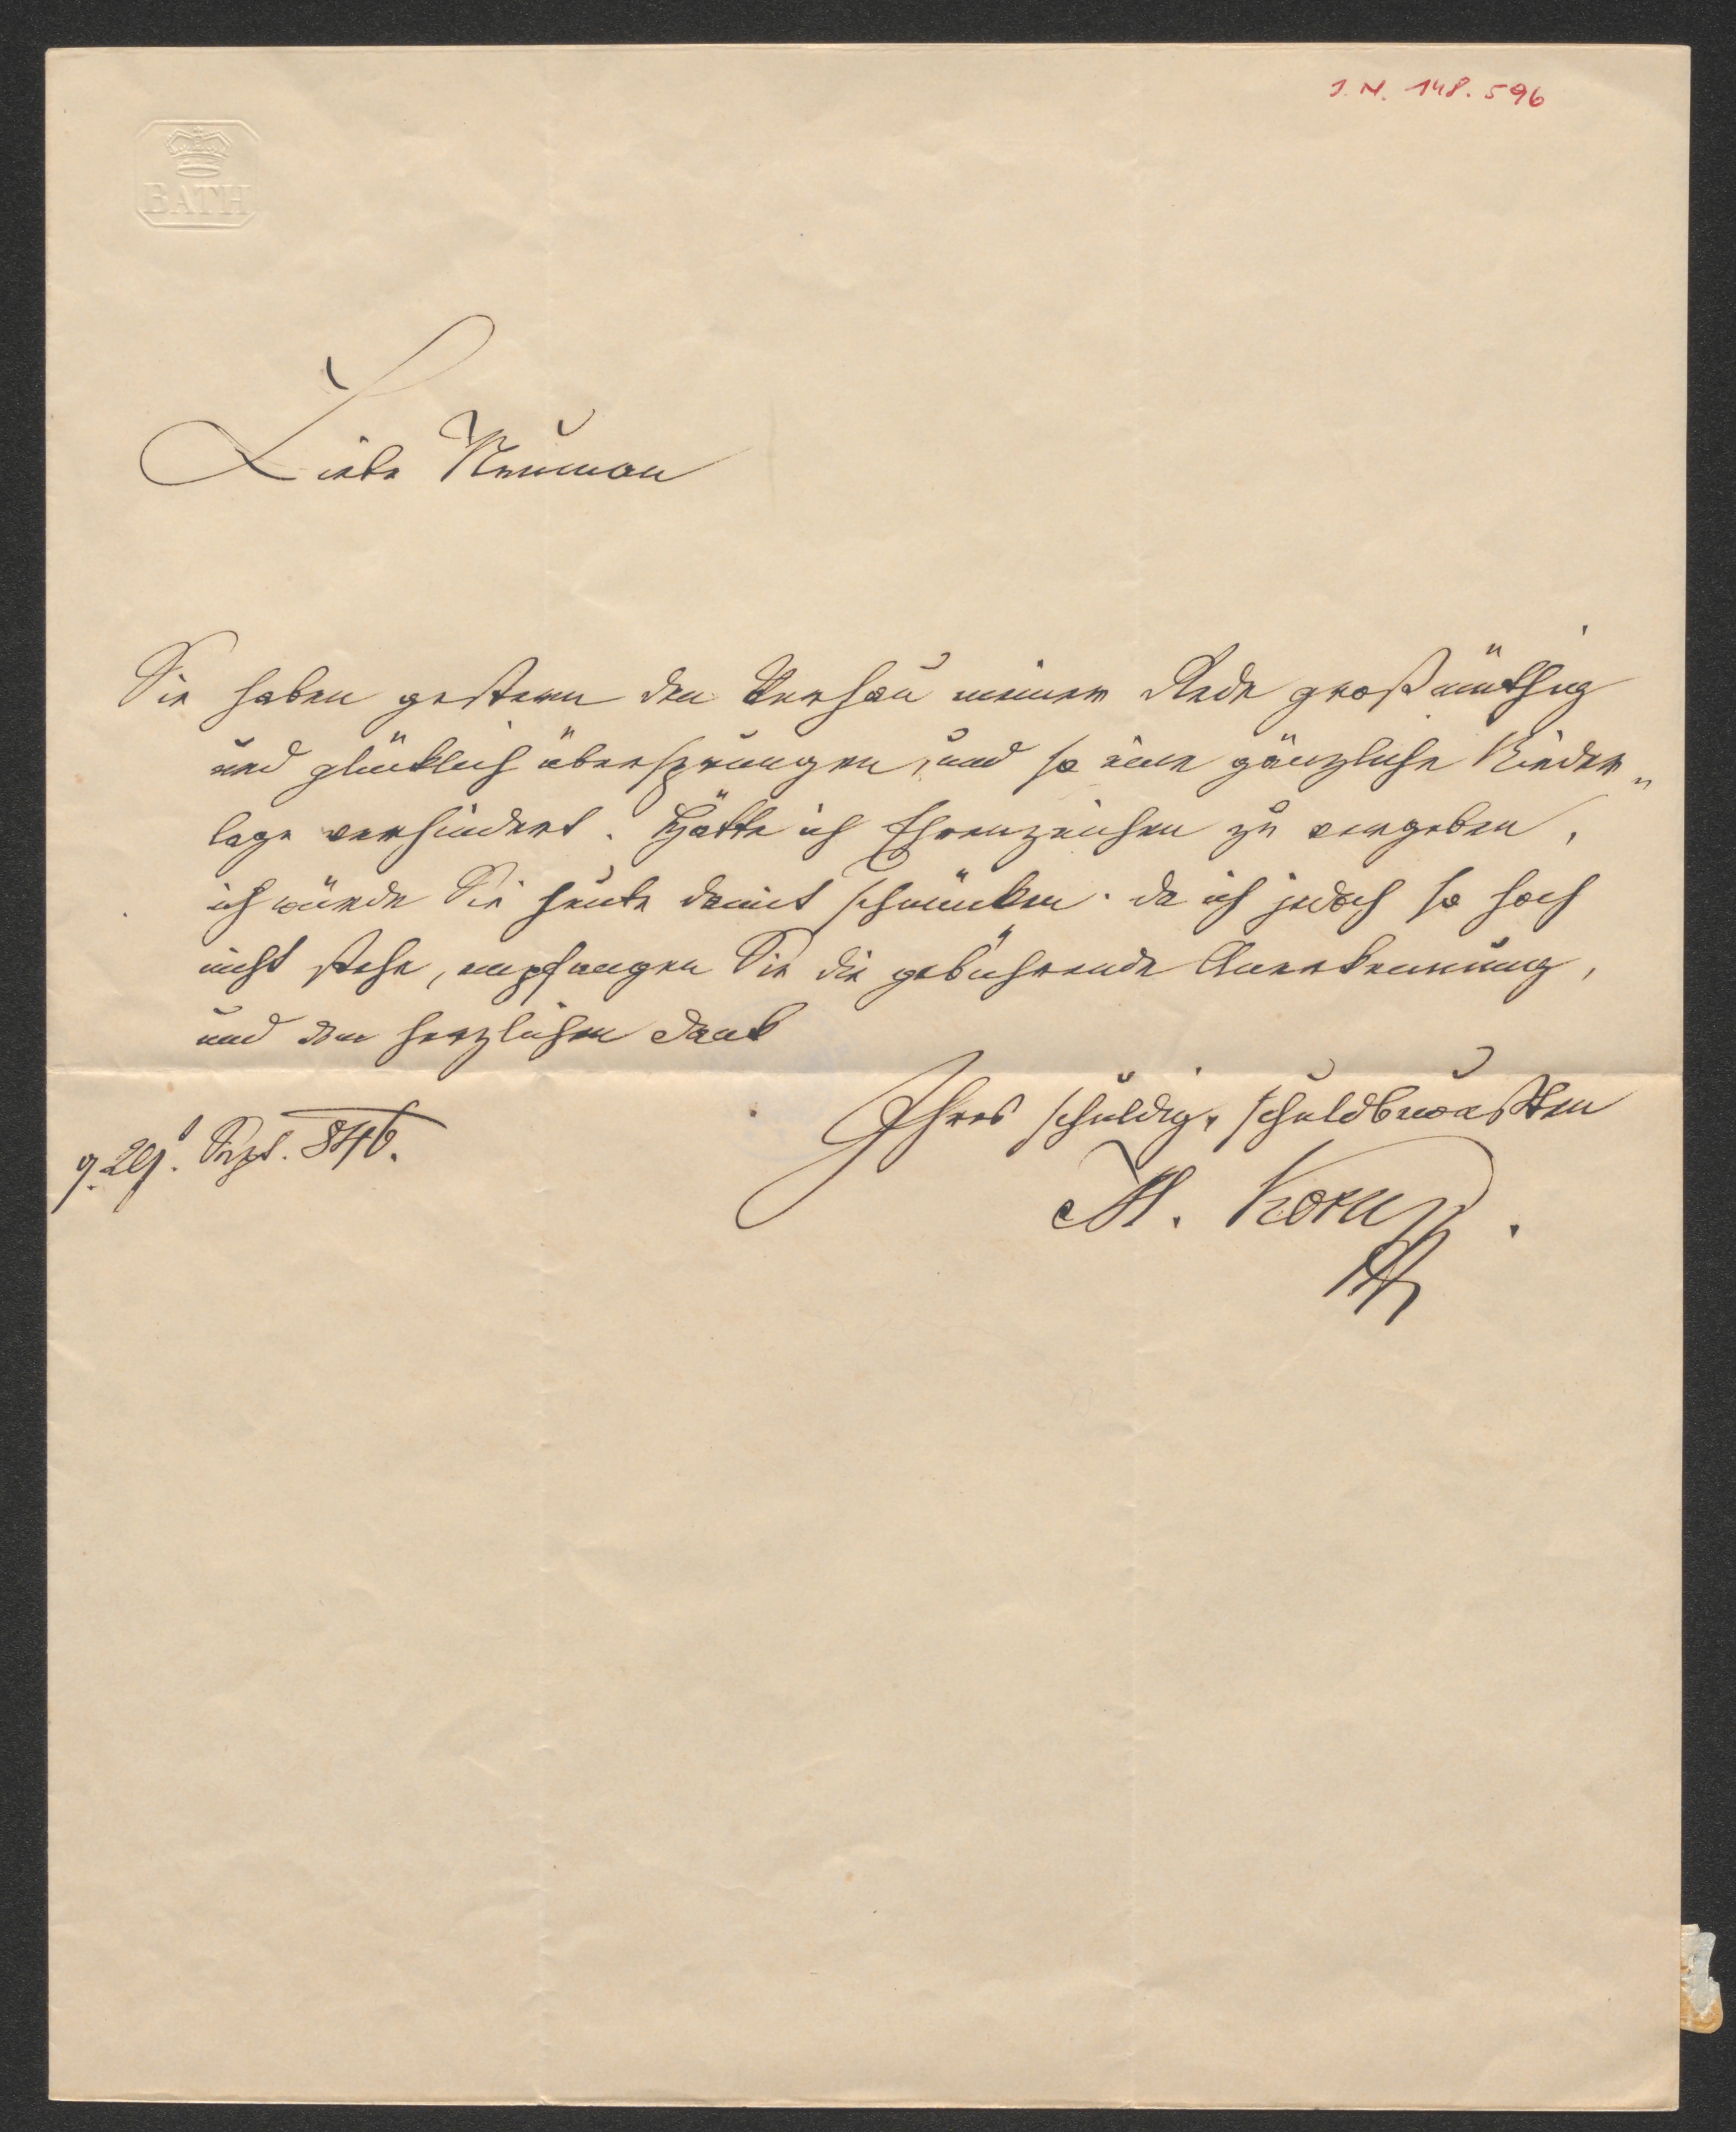 J. N. 148.596
BATH
Liebe Neuman
Sie haben gestern den Verhau meiner Rede großmüthig
und glücklich übersprungen, und so eine gänzliche Nieder„
lage verhindert. Hätte ich Ehrenzeichen zu vergeben,
ich würde Sie heute damit schmücken. da ich jedoch so hoch
nicht stehe, empfangen Sie die gebührende Anerkennung,
und den herzlichen Dank
Ihres schuldig, schuldbewußten
29t. Sept. 846.
M. Korn